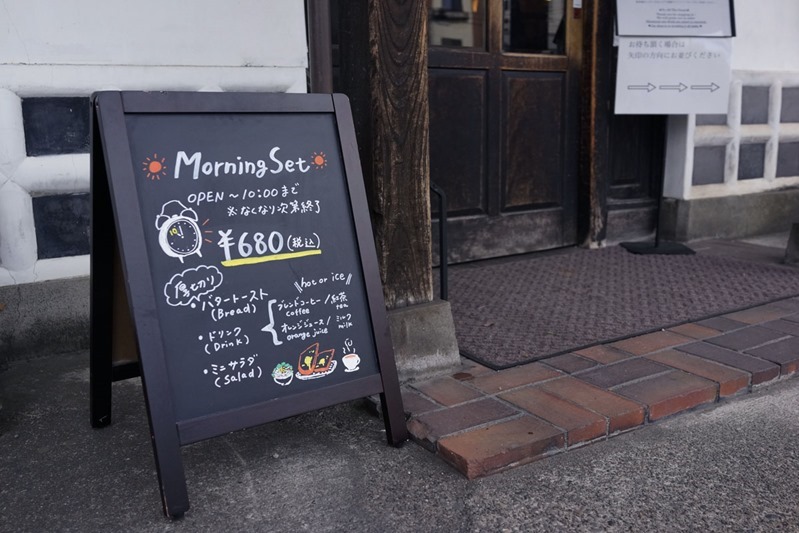 Morning Set
OPEN ～ 10:00 まで
※なくなり次第終了
10
¥680(税込)
厚切り
・バタートースト
(Bread)
・ドリンク
(Drink)
・ミニサラダ
(Salad)
hot or ice
ブレンドコーヒー/紅茶
coffee tea
オレンジジュース/ミルク
orange juice milk
お待ち頂く場合は
矢印の方向にお並びください
→→→